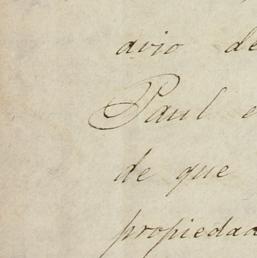 avio de
Paul e
de que
propiedad